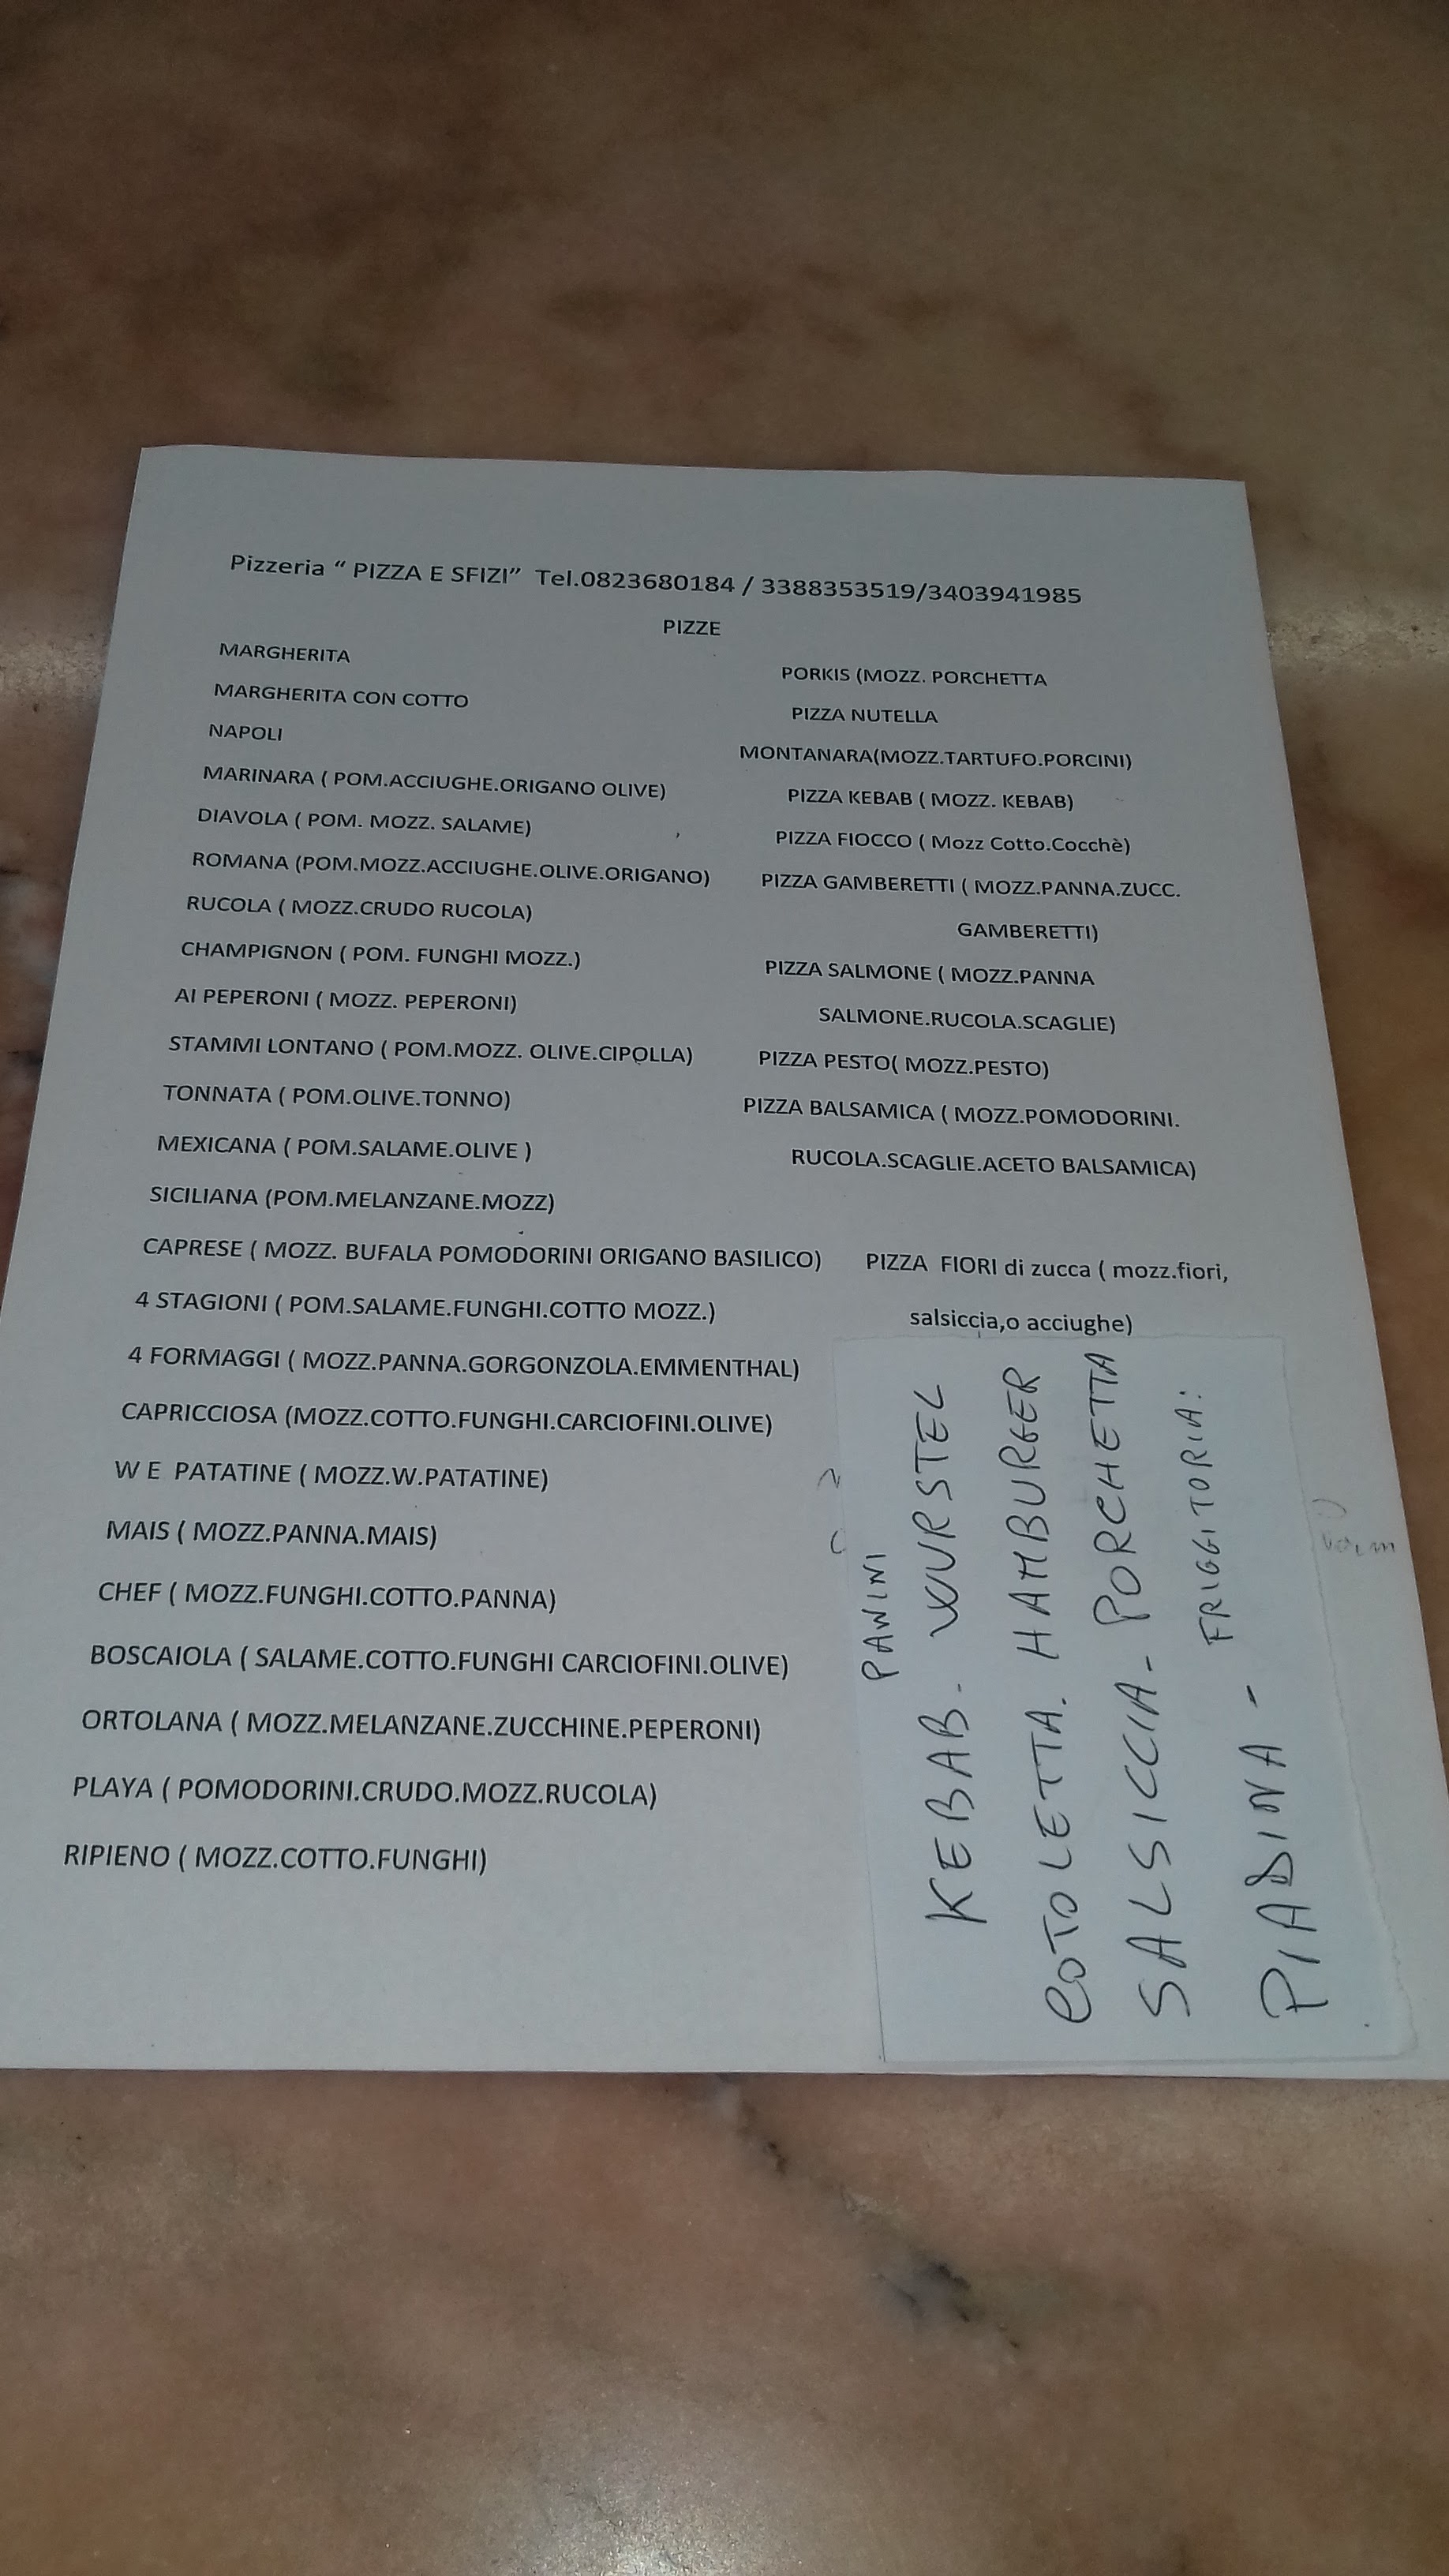 Pizzeria “ PIZZA E SFIZI”  Tel.0823680184 / 3388353519/3403941985
PIZZE
MARGHERITA
MARGHERITA CON COTTO
NAPOLI
MARINARA ( POM.ACCIUGHE.ORIGANO OLIVE)
DIAVOLA ( POM. MOZZ. SALAME)
ROMANA (POM.MOZZ.ACCIUGHE.OLIVE.ORIGANO)
RUCOLA ( MOZZ.CRUDO RUCOLA)
CHAMPIGNON ( POM. FUNGHI MOZZ.)
AI PEPERONI ( MOZZ. PEPERONI)
STAMMI LONTANO ( POM.MOZZ. OLIVE.CIPOLLA)
TONNATA ( POM.OLIVE.TONNO)
MEXICANA ( POM.SALAME.OLIVE )
SICILIANA (POM.MELANZANE.MOZZ)
CAPRESE ( MOZZ. BUFALA POMODORINI ORIGANO BASILICO)
4 STAGIONI ( POM.SALAME.FUNGHI.COTTO MOZZ.)
4 FORMAGGI ( MOZZ.PANNA.GORGONZOLA.EMMENTHAL)
CAPRICCIOSA (MOZZ.COTTO.FUNGHI.CARCIOFINI.OLIVE)
W E  PATATINE ( MOZZ.W.PATATINE)
MAIS ( MOZZ.PANNA.MAIS)
CHEF ( MOZZ.FUNGHI.COTTO.PANNA)
BOSCAIOLA ( SALAME.COTTO.FUNGHI CARCIOFINI.OLIVE)
ORTOLANA ( MOZZ.MELANZANE.ZUCCHINE.PEPERONI)
PLAYA ( POMODORINI.CRUDO.MOZZ.RUCOLA)
RIPIENO ( MOZZ.COTTO.FUNGHI)
PORKIS (MOZZ. PORCHETTA
PIZZA NUTELLA
MONTANARA(MOZZ.TARTUFO.PORCINI)
PIZZA KEBAB ( MOZZ. KEBAB)
PIZZA FIOCCO ( Mozz Cotto.Cocchè)
PIZZA GAMBERETTI ( MOZZ.PANNA.ZUCC.
GAMBERETTI)
PIZZA SALMONE ( MOZZ.PANNA
SALMONE.RUCOLA.SCAGLIE)
PIZZA PESTO( MOZZ.PESTO)
PIZZA BALSAMICA ( MOZZ.POMODORINI.
RUCOLA.SCAGLIE.ACETO BALSAMICA)
PIZZA  FIORI di zucca ( mozz.fiori,
salsiccia,o acciughe)
PANINI
KEBAB. WURSTEL
COTOLETTA. HAMBURGER
SALSICCIA- PORCHETTA
FRIGGITORIA:
PIADINA -